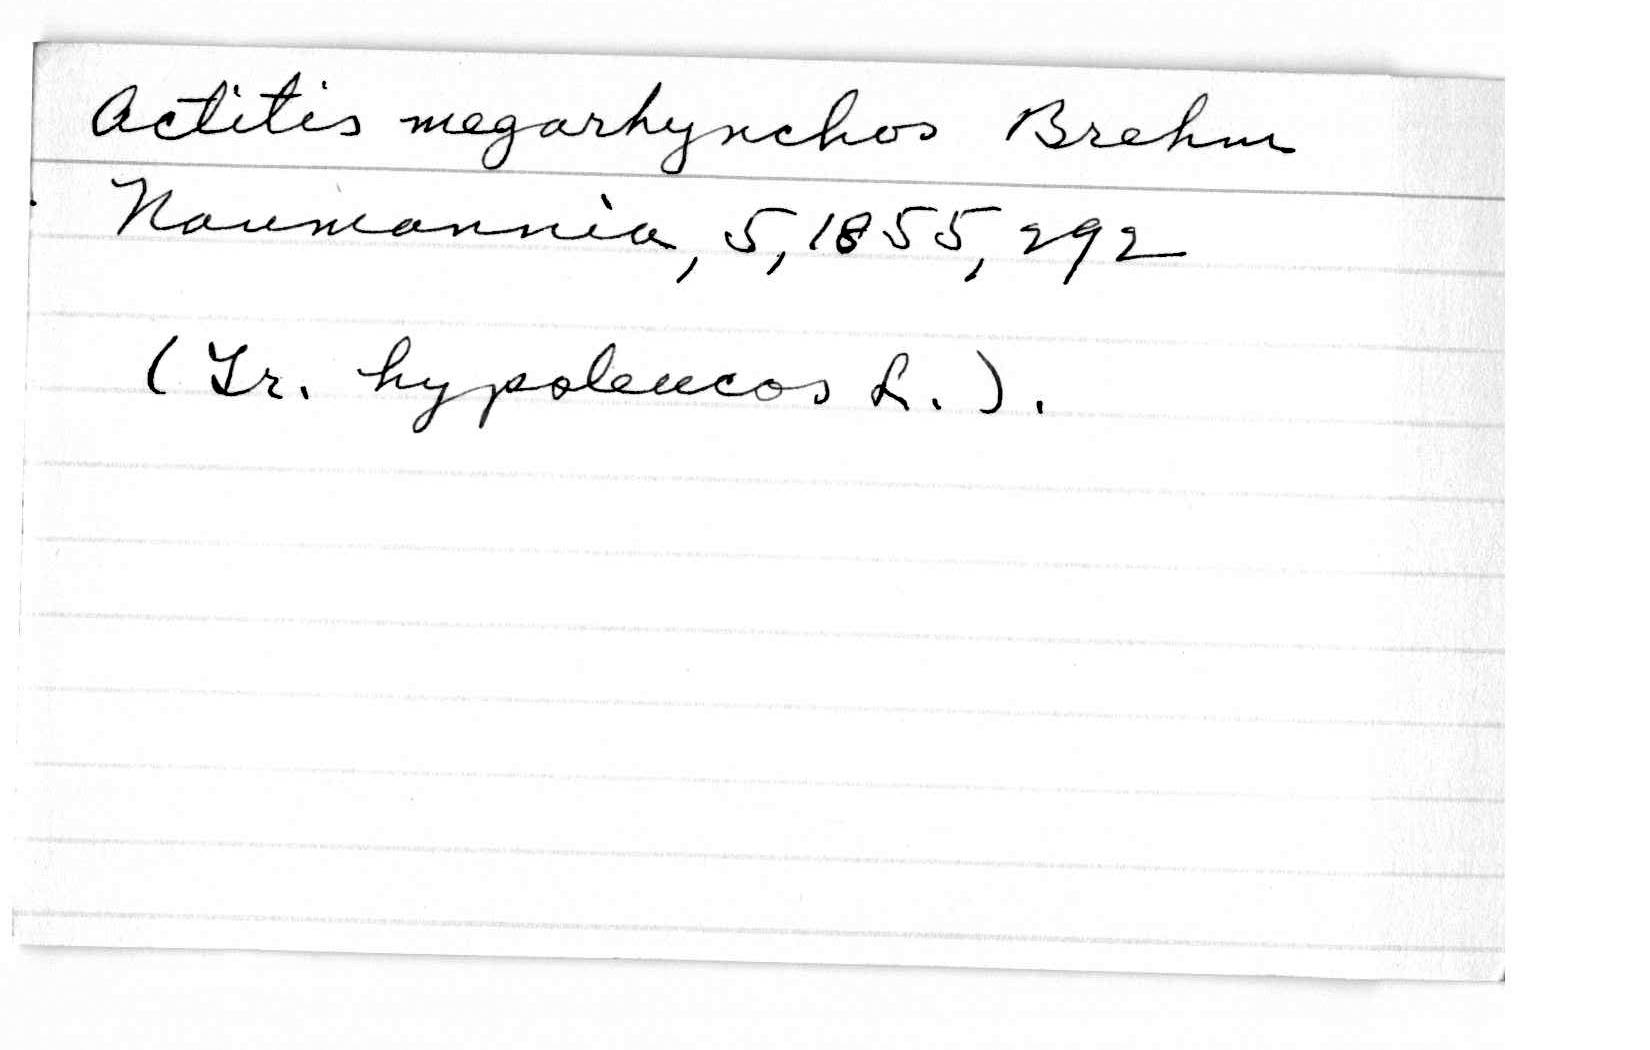 Actitis megarhynchos Brehm
Naumannia, 5, 1855, 292
(Tr. hypoleucos L.).